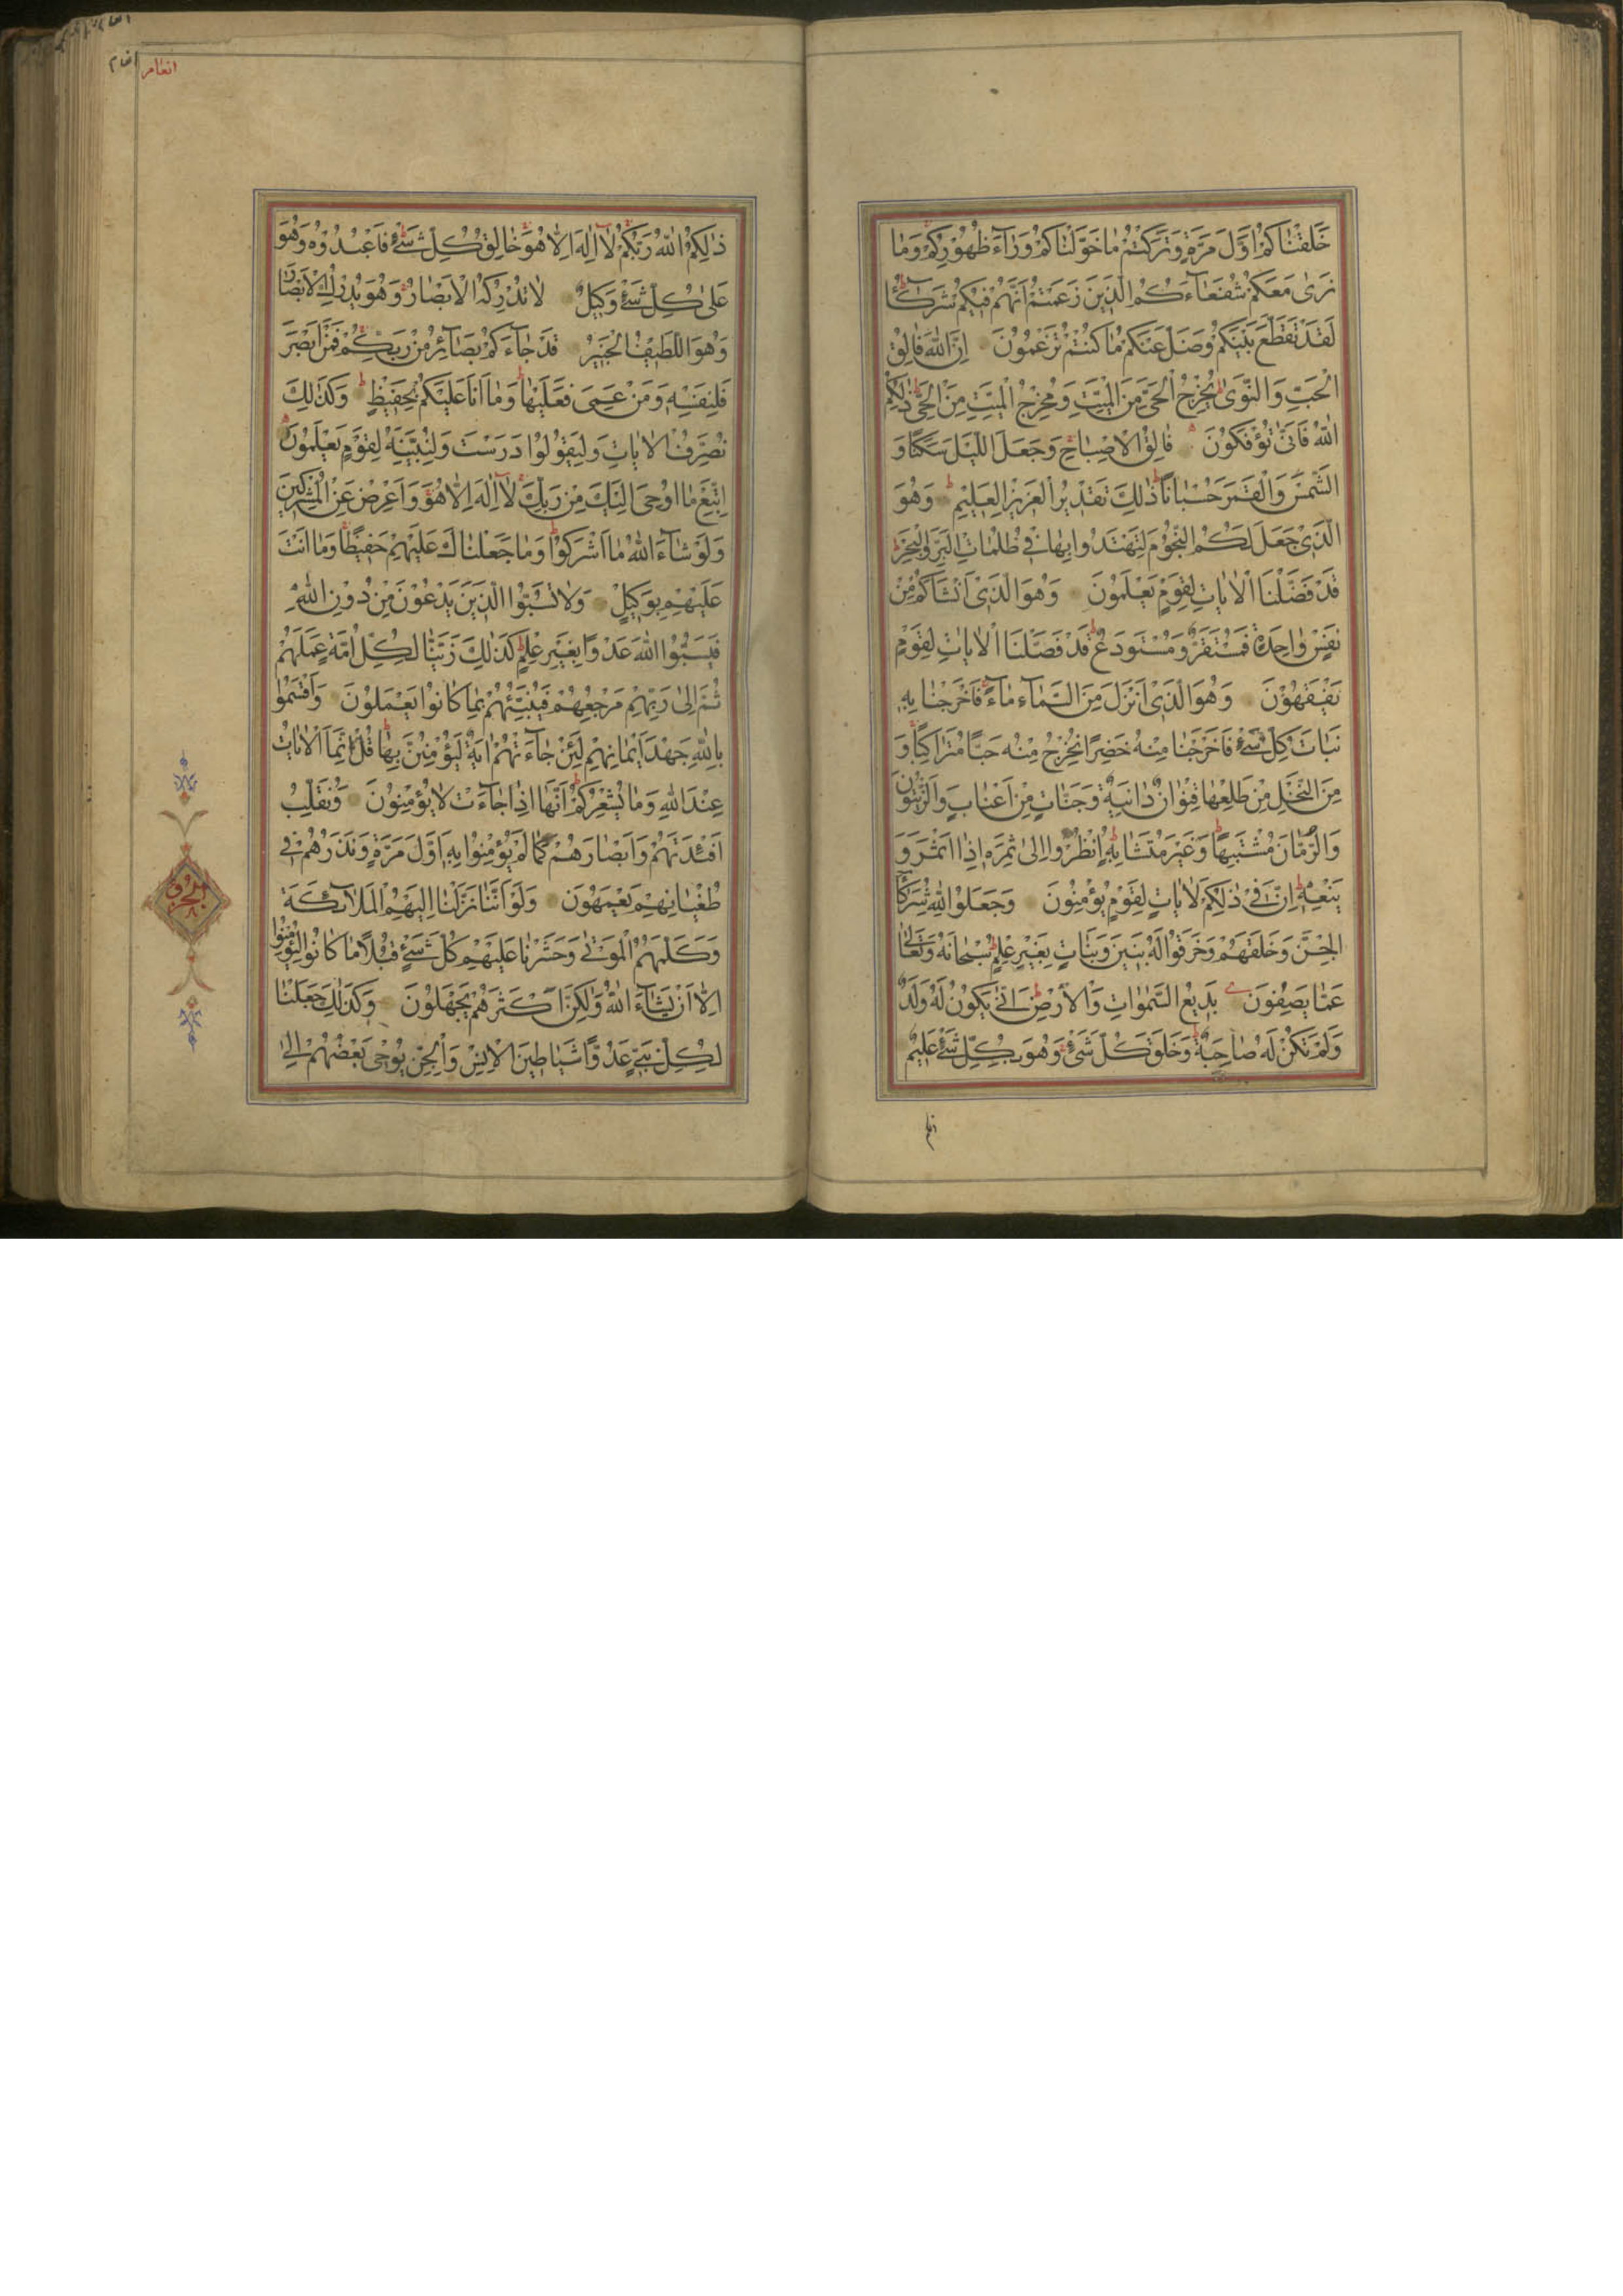 خَلَقْنَاكُمْ اَوَّلَ مَرَّةٍ وَتَرَكْتُمْ مَا خَوَّلْنَاكُمْ وَرَآءَ ظُهُوْرِكُمْ وَمَا
نَرٰى مَعَكُمْ شُفَعَآءَكُمُ الَّذِيْنَ زَعَمْتُمْ اَنَّهُمْ فِيْكُمْ شُرَكَآءُ
لَقَدْ تَقَطَّعَ بَيْنَكُمْ وَضَلَّ عَنْكُمْ مَا كُنْتُمْ تَزْعُمُوْنَ اِنَّ اللّٰهَ فَالِقُ
الْحَبِّ وَالنَّوٰى يُخْرِجُ الْحَيَّ مِنَ الْمَيِّتِ وَمُخْرِجُ الْمَيِّتِ مِنَ الْحَيِّ ذٰلِكُمُ
اللّٰهُ فَاَنّٰى تُؤْفَكُوْنَ فَالِقُ الْاِصْبَاحِ وَجَعَلَ اللَّيْلَ سَكَنًا وَ
الشَّمْسَ وَالْقَمَرَ حُسْبَانًا ذٰلِكَ تَقْدِيْرُ الْعَزِيْزِ الْعَلِيْمِ وَهُوَ
الَّذِيْ جَعَلَ لَكُمُ النُّجُوْمَ لِتَهْتَدُوا بِهَا فِيْ ظُلُمَاتِ الْبَرِّ وَالْبَحْرِ
قَدْ فَصَّلْنَا الْاٰيَاتِ لِقَوْمٍ يَعْلَمُوْنَ وَهُوَ الَّذِيْ اَنْشَاَكُمْ مِنْ
نَفْسٍ وَاحِدَةٍ فَمُسْتَقَرٌّ وَمُسْتَوْدَعٌ قَدْ فَصَّلْنَا الْاٰيَاتِ لِقَوْمٍ
يَفْقَهُوْنَ وَهُوَ الَّذِيْ اَنْزَلَ مِنَ السَّمَآءِ مَآءً فَاَخْرَجْنَا بِهٖ
نَبَاتَ كُلِّ شَيْءٍ فَاَخْرَجْنَا مِنْهُ خَضِرًا نُخْرِجُ مِنْهُ حَبًّا مُتَرَاكِبًا وَ
مِنَ النَّخْلِ مِنْ طَلْعِهَا قِنْوَانٌ دَانِيَةٌ وَجَنَّاتٍ مِنْ اَعْنَابٍ وَالزَّيْتُوْنَ
وَالرُّمَّانَ مُشْتَبِهًا وَغَيْرَ مُتَشَابِهٍ اُنْظُرُوا اِلٰى ثَمَرِهٖ اِذَا اَثْمَرَ وَ
يَنْعِهٖ اِنَّ فِيْ ذٰلِكُمْ لَاٰيَاتٍ لِقَوْمٍ يُؤْمِنُوْنَ وَجَعَلُوا لِلّٰهِ شُرَكَآءَ
الْجِنَّ وَخَلَقَهُمْ وَخَرَقُوا لَهُ بَنِيْنَ وَبَنَاتٍ بِغَيْرِ عِلْمٍ سُبْحَانَهُ وَتَعَالٰى
عَمَّا يَصِفُوْنَ بَدِيْعُ السَّمٰوَاتِ وَالْاَرْضِ اَنّٰى يَكُوْنُ لَهُ وَلَدٌ
وَلَمْ تَكُنْ لَهُ صَاحِبَةٌ وَخَلَقَ كُلَّ شَيْءٍ وَهُوَ بِكُلِّ شَيْءٍ عَلِيْمٌ
انعام
ذٰلِكُمُ اللّٰهُ رَبُّكُمْ لَآ اِلٰهَ اِلَّا هُوَ خَالِقُ كُلِّ شَيْءٍ فَاعْبُدُوْهُ وَهُوَ
عَلٰى كُلِّ شَيْءٍ وَكِيْلٌ لَا تُدْرِكُهُ الْاَبْصَارُ وَهُوَ يُدْرِكُ الْاَبْصَارَ
وَهُوَ اللَّطِيْفُ الْخَبِيْرُ قَدْ جَآءَكُمْ بَصَآئِرُ مِنْ رَبِّكُمْ فَمَنْ اَبْصَرَ
فَلِنَفْسِهٖ وَمَنْ عَمِيَ فَعَلَيْهَا وَمَا اَنَا عَلَيْكُمْ بِحَفِيْظٍ وَكَذٰلِكَ
نُصَرِّفُ الْاٰيَاتِ وَلِيَقُوْلُوْا دَرَسْتَ وَلِنُبَيِّنَهُ لِقَوْمٍ يَعْلَمُوْنَ
اِتَّبِعْ مَا اُوْحِيَ اِلَيْكَ مِنْ رَبِّكَ لَآ اِلٰهَ اِلَّا هُوَ وَاَعْرِضْ عَنِ الْمُشْرِكِيْنَ
وَلَوْ شَآءَ اللّٰهُ مَا اَشْرَكُوْا وَمَا جَعَلْنَاكَ عَلَيْهِمْ حَفِيْظًا وَمَا اَنْتَ
عَلَيْهِمْ بِوَكِيْلٍ وَلَا تَسُبُّوا الَّذِيْنَ يَدْعُوْنَ مِنْ دُوْنِ اللّٰهِ
فَيَسُبُّوُا اللّٰهَ عَدْوًا بِغَيْرِ عِلْمٍ كَذٰلِكَ زَيَّنَّا لِكُلِّ اُمَّةٍ عَمَلَهُمْ
ثُمَّ اِلٰى رَبِّهِمْ مَرْجِعُهُمْ فَيُنَبِّئُهُمْ بِمَا كَانُوْا يَعْمَلُوْنَ وَاَقْسَمُوا
بِاللّٰهِ جَهْدَ اَيْمَانِهِمْ لَئِنْ جَآءَتْهُمْ اٰيَةٌ لَيُؤْمِنُنَّ بِهَا قُلْ اِنَّمَا الْاٰيَاتُ
عِنْدَ اللّٰهِ وَمَا يُشْعِرُكُمْ اَنَّهَا اِذَا جَآءَتْ لَا يُؤْمِنُوْنَ وَنُقَلِّبُ
اَفْئِدَتَهُمْ وَاَبْصَارَهُمْ كَمَا لَمْ يُؤْمِنُوْا بِهٖ اَوَّلَ مَرَّةٍ وَنَذَرُهُمْ فِيْ
طُغْيَانِهِمْ يَعْمَهُوْنَ وَلَوْ اَنَّنَا نَزَّلْنَا اِلَيْهِمُ الْمَلَآئِكَةَ
وَكَلَّمَهُمُ الْمَوْتٰى وَحَشَرْنَا عَلَيْهِمْ كُلَّ شَيْءٍ قُبُلًا مَا كَانُوْا لِيُؤْمِنُوْا
اِلَّا اَنْ يَشَآءَ اللّٰهُ وَلٰكِنَّ اَكْثَرَهُمْ يَجْهَلُوْنَ وَكَذٰلِكَ جَعَلْنَا
لِكُلِّ نَبِيٍّ عَدُوًّا شَيَاطِيْنَ الْاِنْسِ وَالْجِنِّ يُوْحِيْ بَعْضُهُمْ اِلٰى